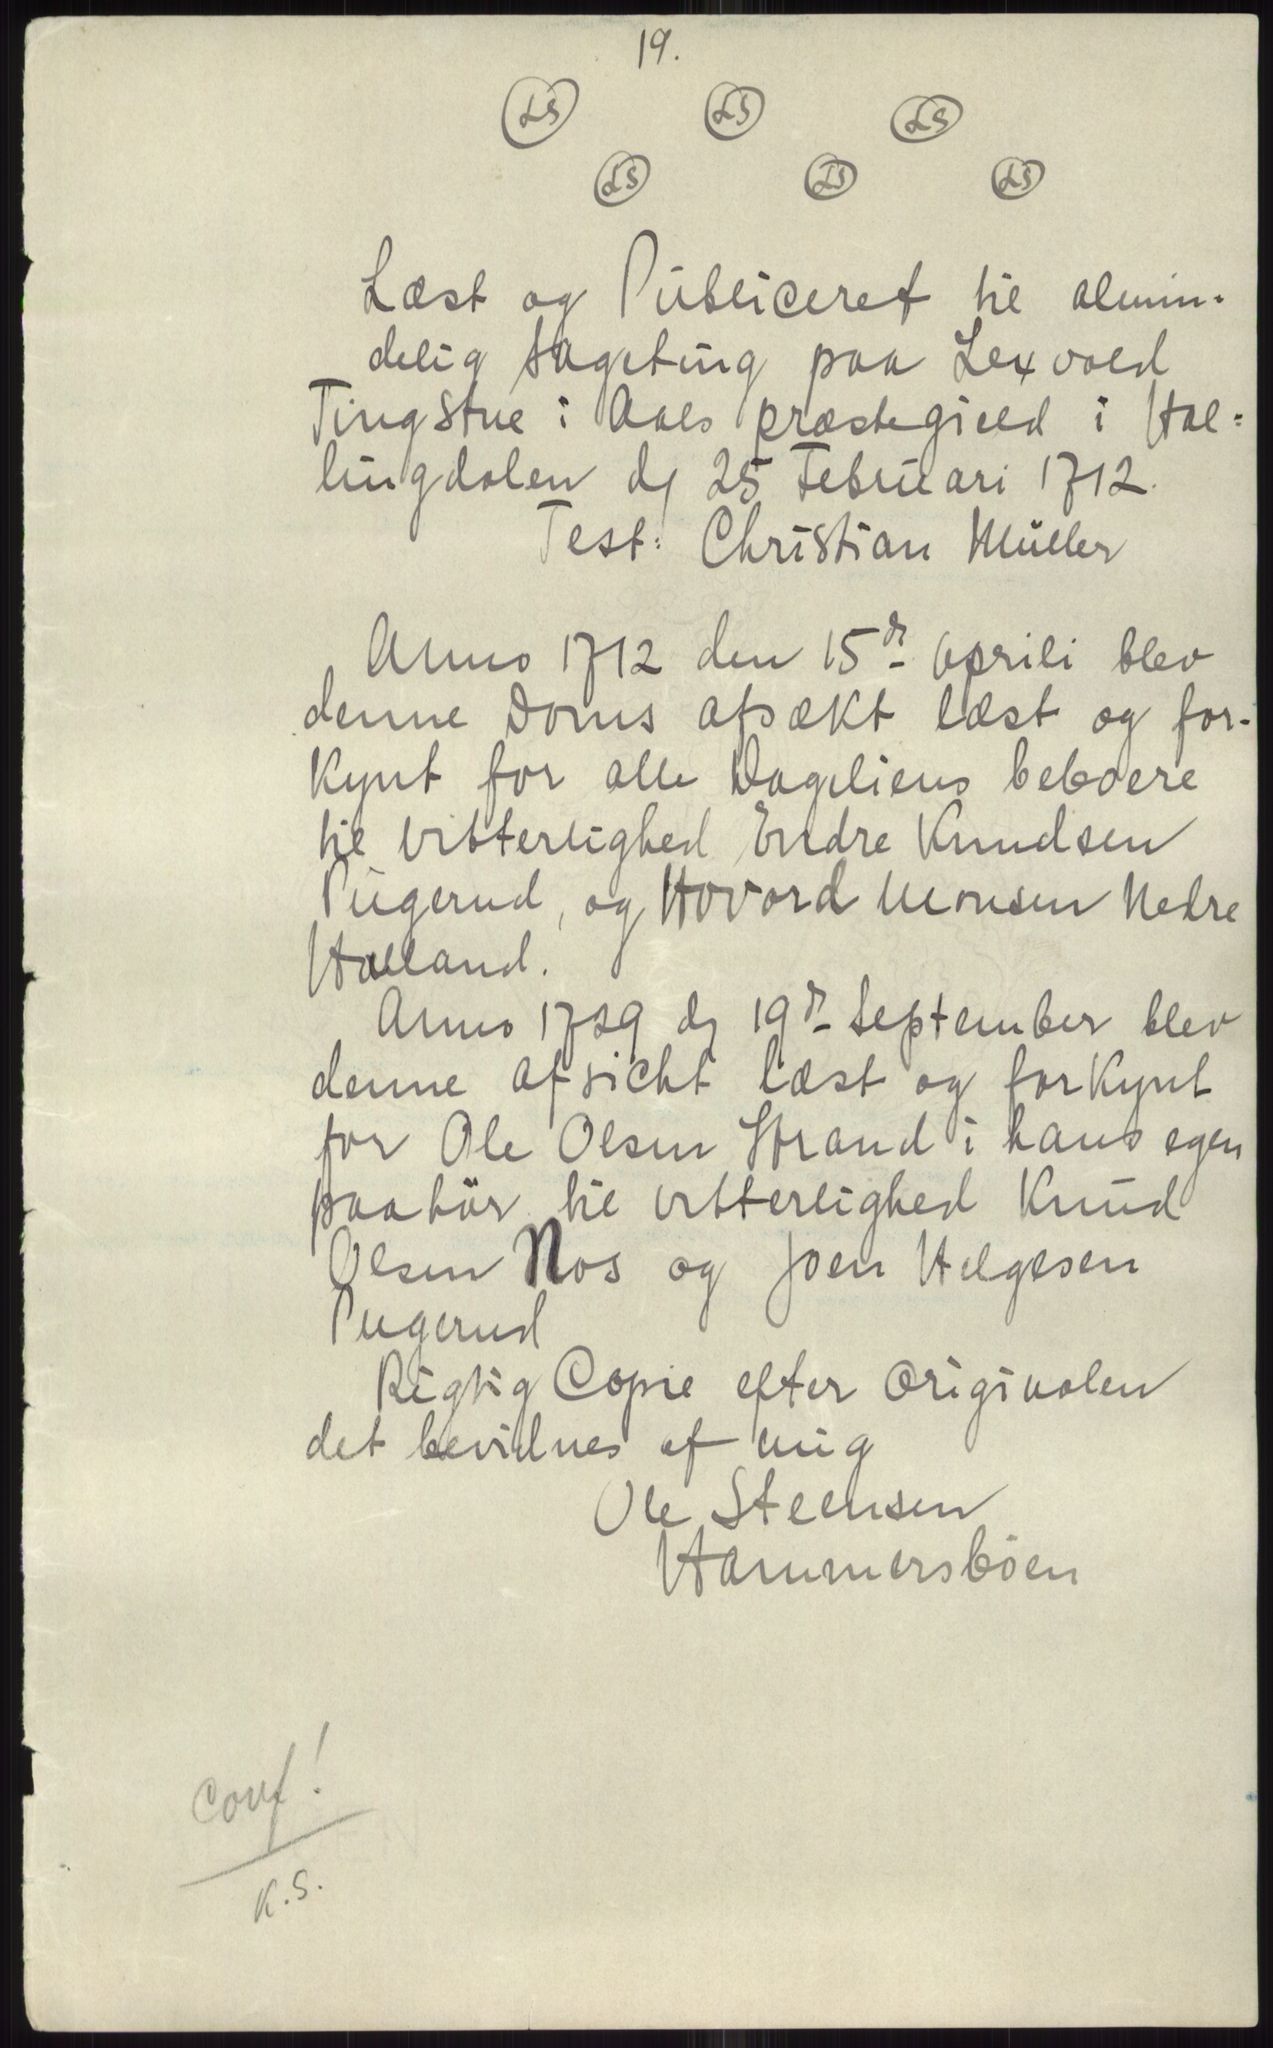 19.
LS LS LS
LS LS LS
Læst og Publiceret til almin-
delig Sageting paa Lexvold
Tingstue i Aals præstegield i Hal=
lingdalen dj 25 Februari 1712.
Test: Christian Müller
Anno 1712 den 15de Aprili blev
denne Doms afsækt læst og for-
kynt for alle Dageliens beboere
til vitterlighed Endre Knudsen
Pugerud, og Hovord Monsen Nedre
Halland.
Anno 1729 dj 19de September blev
denne afsicht læst og forkynt
for Ole Olsen Strand i hans egen
paahör til vitterlighed Knud
Olsen Nos og Joen Helgesen
Pugerud
Rigtig Copie efter Originalen
det bevidnes af mig
Ole Steensen
Hammersböen
Conf!
K.S.